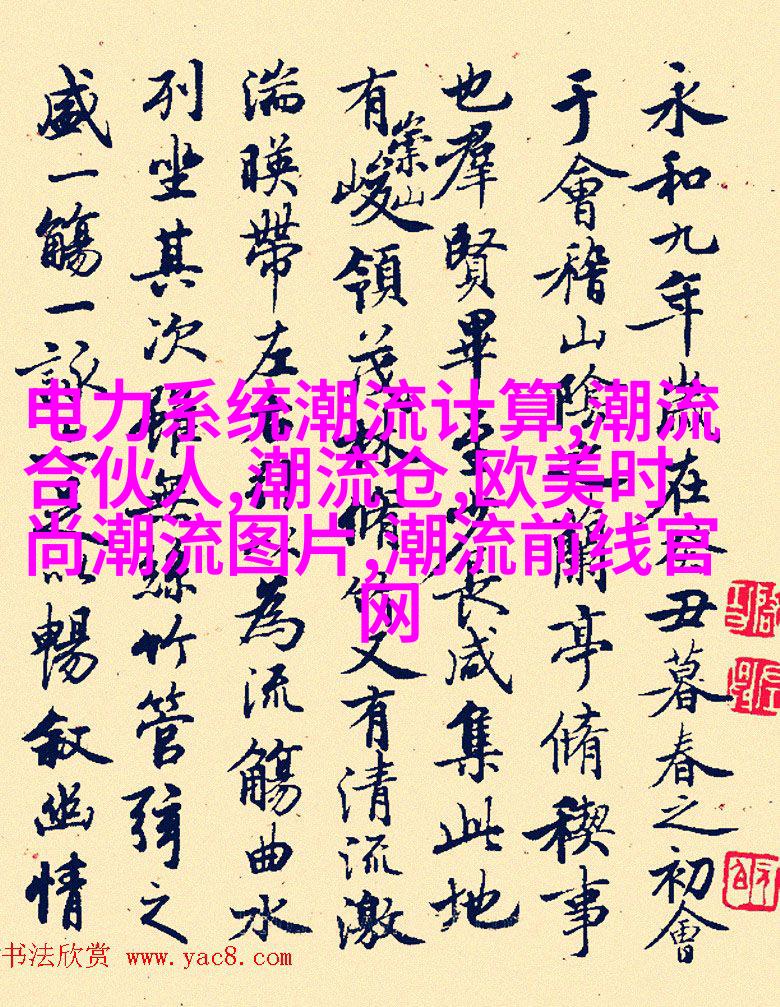 永和九年歲在癸丑暮春之初會
于會稽山陰之蘭亭脩稧事
也羣賢畢至少長咸集此地
有崇山峻領茂林脩竹又有清流激
湍暎帶左右引以為流觴曲水
列坐其次雖無絲竹管弦之
盛一觴一詠亦足以暢敘幽情
电力系统潮流计算,潮流
合伙人,潮流仓,欧美时
尚潮流图片,潮流前线官
网
书法欣赏 www.yac8.com